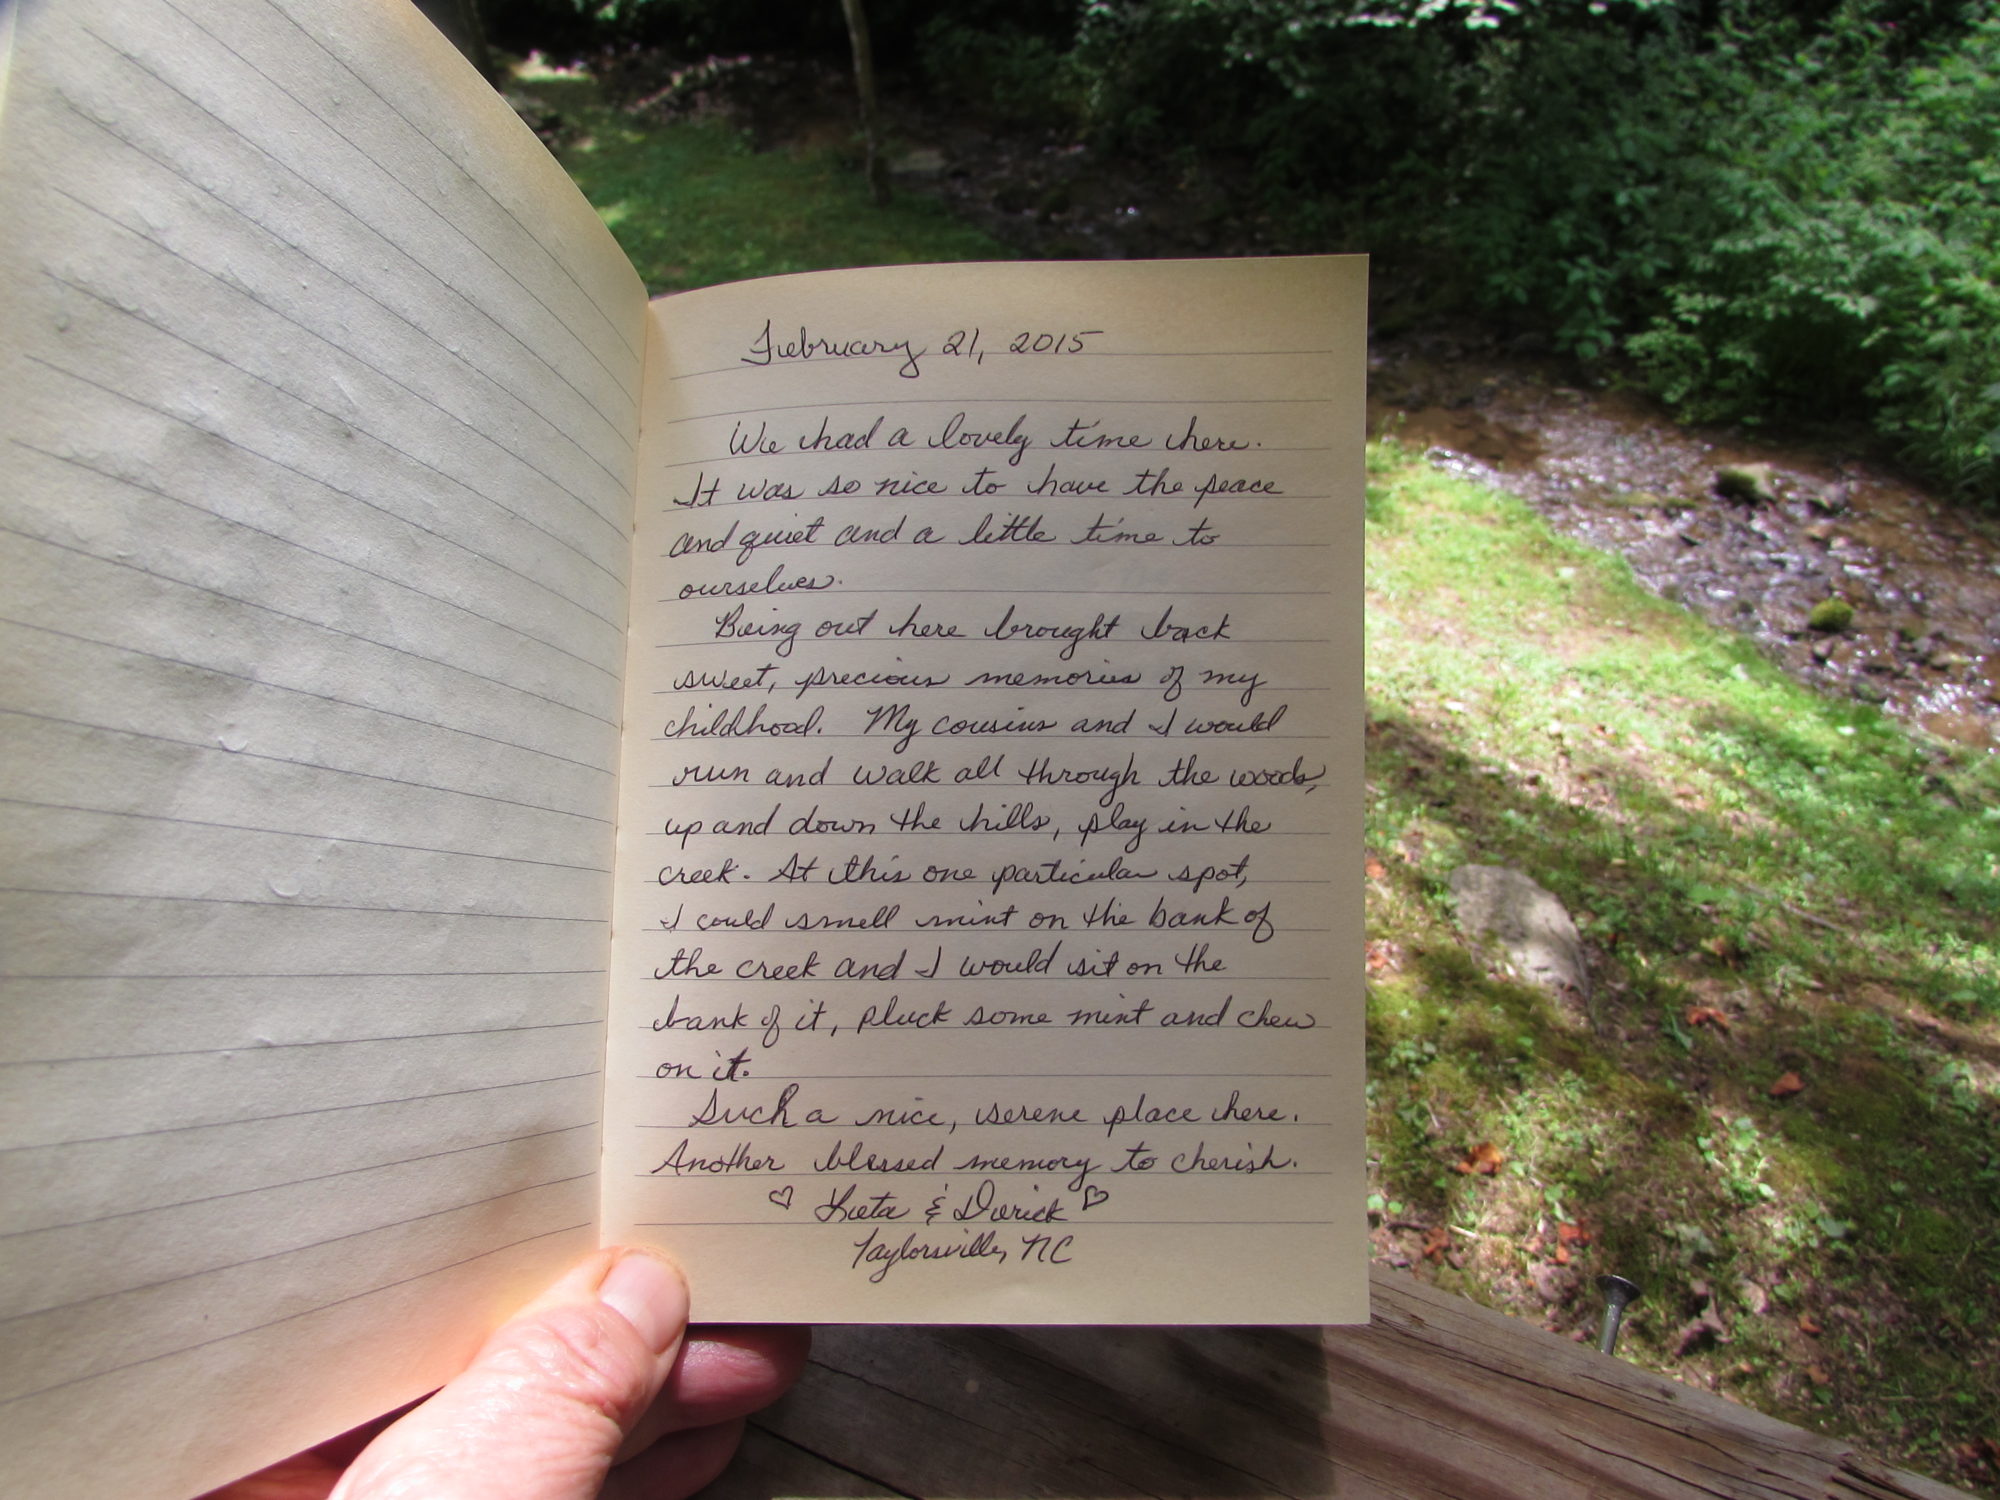 February 21, 2015
We had a lovely time here.
It was so nice to have the peace
and quiet and a little time to
ourselves.
Being out here brought back
sweet, precious memories of my
childhood. My cousins and I would
run and walk all through the woods,
up and down the hills, play in the
creek. At this one particular spot,
I could smell mint on the bank of
the creek and I would sit on the
bank of it, pluck some mint and chew
on it.
Such a nice, serene place here.
Another blessed memory to cherish.
♡ & Derick ♡
Taylorsville, NC